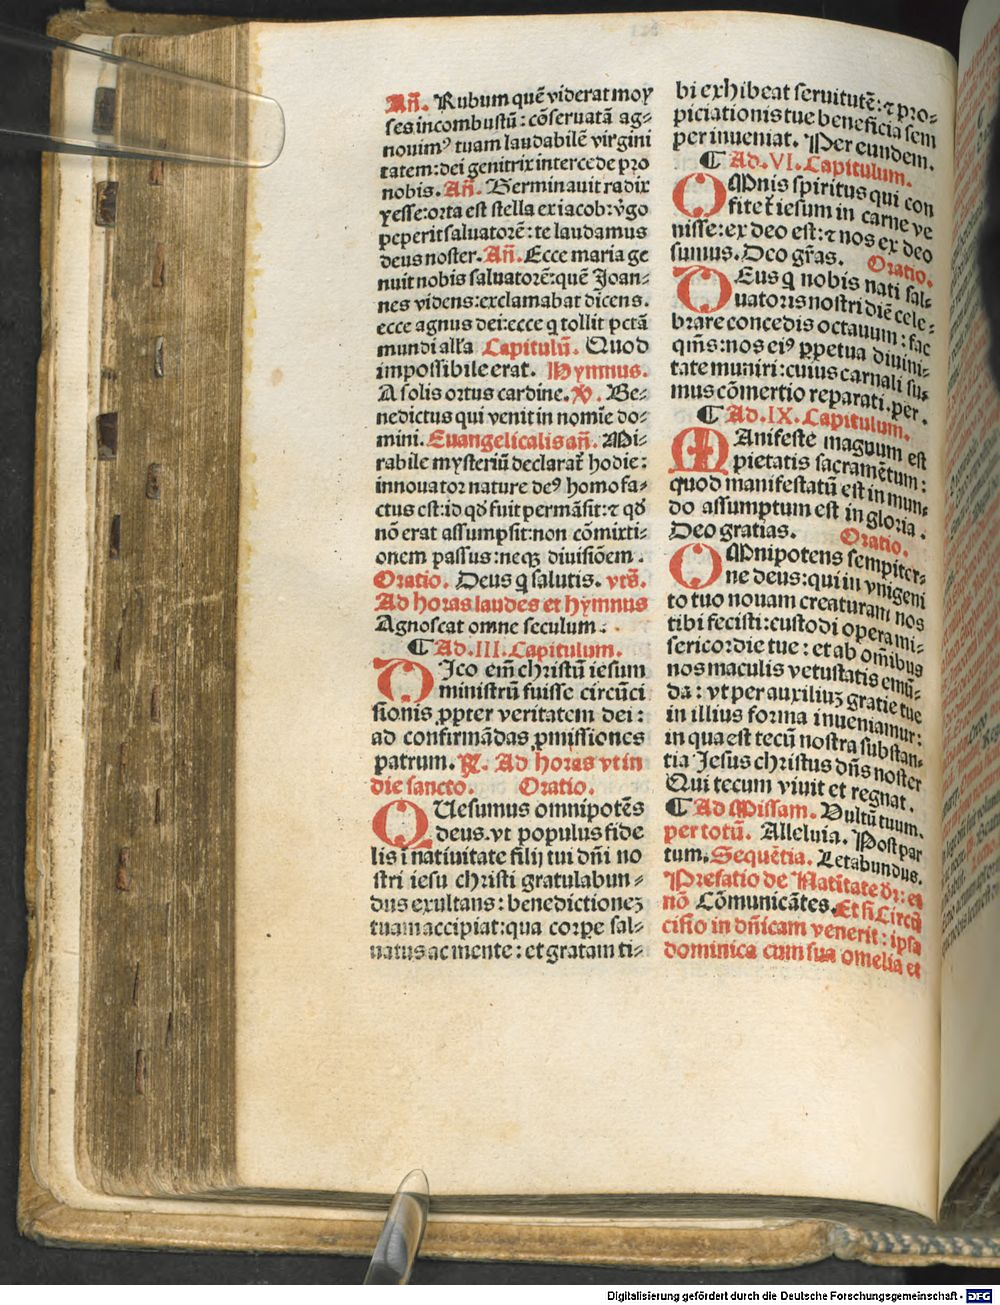 Añ. Rubum quē viderat moy
ses incombustū: cōseruatā ag⸗
nouimꝰ tuam laudabilē virgini
tatem: dei genitrix intercede pro
nobis. Añ. Germinauit radix
yesse: orta est stella ex iacob: v̄go
peperit saluatorē: te laudamus
deus noster. Añ. Ecce maria ge
nuit nobis saluatorē: quē Joan⸗
nes videns: exclamabat dicens.
ecce agnus dei: ecce q̇ tollit pctā
mundi alľa Capitulū. Quod
impossibile erat. Hymnus.
A solis ortus cardine. V̇. Be⸗
nedictus qui venit in nomīe do⸗
mini. Euangelicalis añ. Mi⸗
rabile mysteriū declarat̄ hodie:
innouator nature deꝰ homo fa⸗
ctus est: id qđ fuit permāsit: ⁊ qđ
nō erat assumpsit: non cōmixti⸗
onem passus: neqꝫ diuisiōem.
Oratio. Deus q̇ salutis. vts̄.
Ad horas laudes et hymnus
Agnoscat omne seculum.
¶ Ad. III. Capitulum.
DIco em̄ christū iesum
ministrū fuisse circūci
sionis ꝓpter veritatem dei:
ad confirmādas ꝓmissiones
patrum. ℟. Ad horas vt in
die sancto. Oratio.
QUesumus omnipotēs
deus. vt populus fide
lis ī natiuitate filij tui dñi no
stri iesu christi gratulabun⸗
dus exultans: benedictionez
tuam accipiat: qua corpe sal⸗
uatus ac mente: et gratam ti⸗
bi exhibeat seruitutē: ⁊ pro⸗
piciationis tue beneficia sem
per inueniat. Per eundem.
¶ Ad. VI. Capitulum.
OMnis spiritus qui con
fitet̄ iesum in carne ve
nisse: ex deo est: ⁊ nos ex deo
sumus. Deo gr̄as. Oratio.
DEus q̇ nobis nati sal⸗
uatoris nostri diē cele⸗
brare concedis octauum: fac
qm̄s: nos eiꝰ ꝑpetua diuini⸗
tate muniri: cuius carnali su⸗
mus cōmertio reparati. per.
¶ Ad. IX. Capitulum.
MAnifeste magnum est
pietatis sacramētum:
quod manifestatū est in mun⸗
do assumptum est in gloria.
Deo gratias. Oratio.
OMnipotens sempiter⸗
ne deus: qui in vnigeni
to tuo nouam creaturam nos
tibi fecisti: custodi opera mi⸗
sericordie tue: et ab om̄ibus
nos maculis vetustatis emū⸗
da: vt per auxiliuꝫ gratie tue
in illius forma inueniamur:
in qua est tecū nostra substan⸗
tia Jesus christus dñs noster
Qui tecum viuit et regnat.
¶ Ad Missam. Uultū tuum.
per totū. Alleluia. Post par
tum. Sequētia. Letabundus.
Prefatio de Natītate dr̄: et
nō Cōmunicātes. Et si Circū
cisio in dn̄icam venerit: ipsa
dominica cum sua omelia et
Digitalisierung gefördert durch die Deutsche Forschungsgemeinschaft - DFG